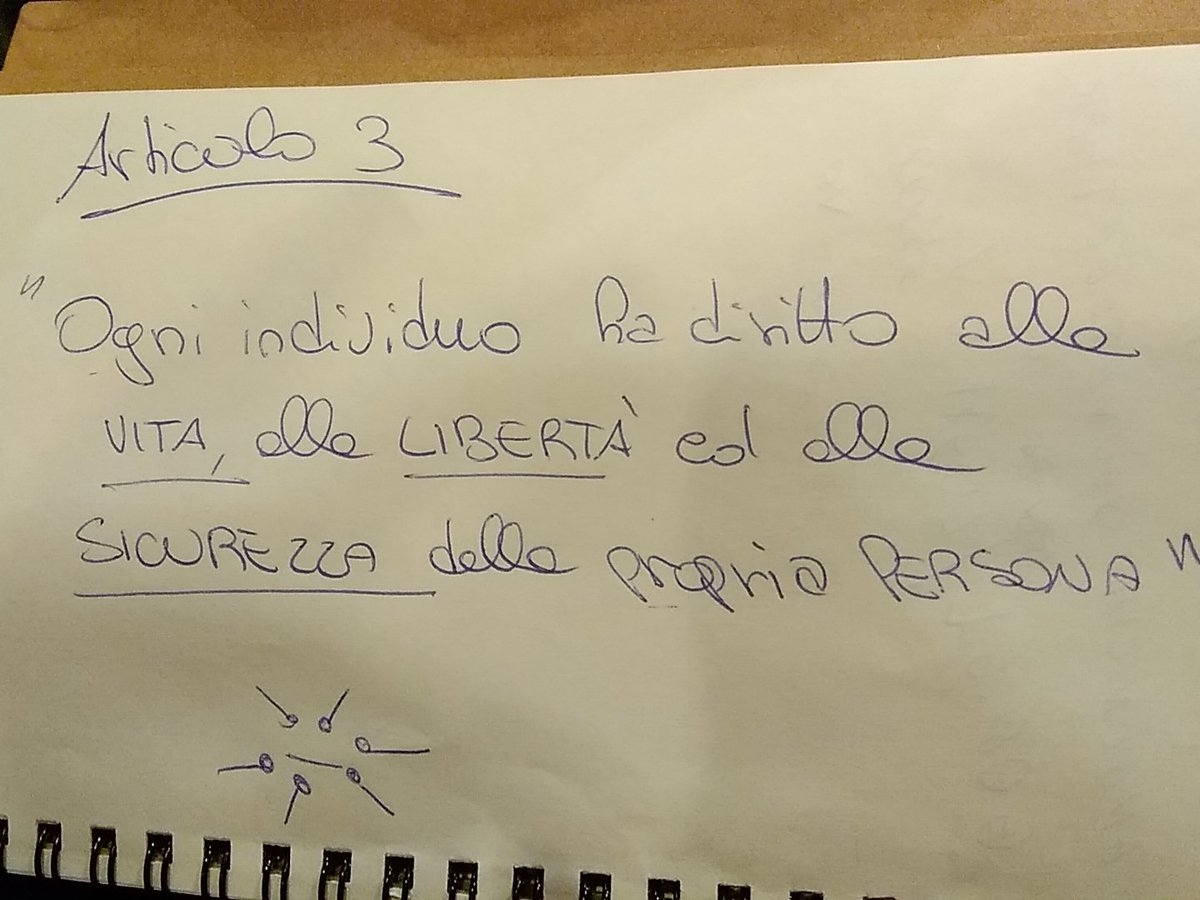 Articolo 3
"Ogni individuo ha diritto alla
VITA, alla LIBERTÀ ed alla
SICUREZZA della propria PERSONA"